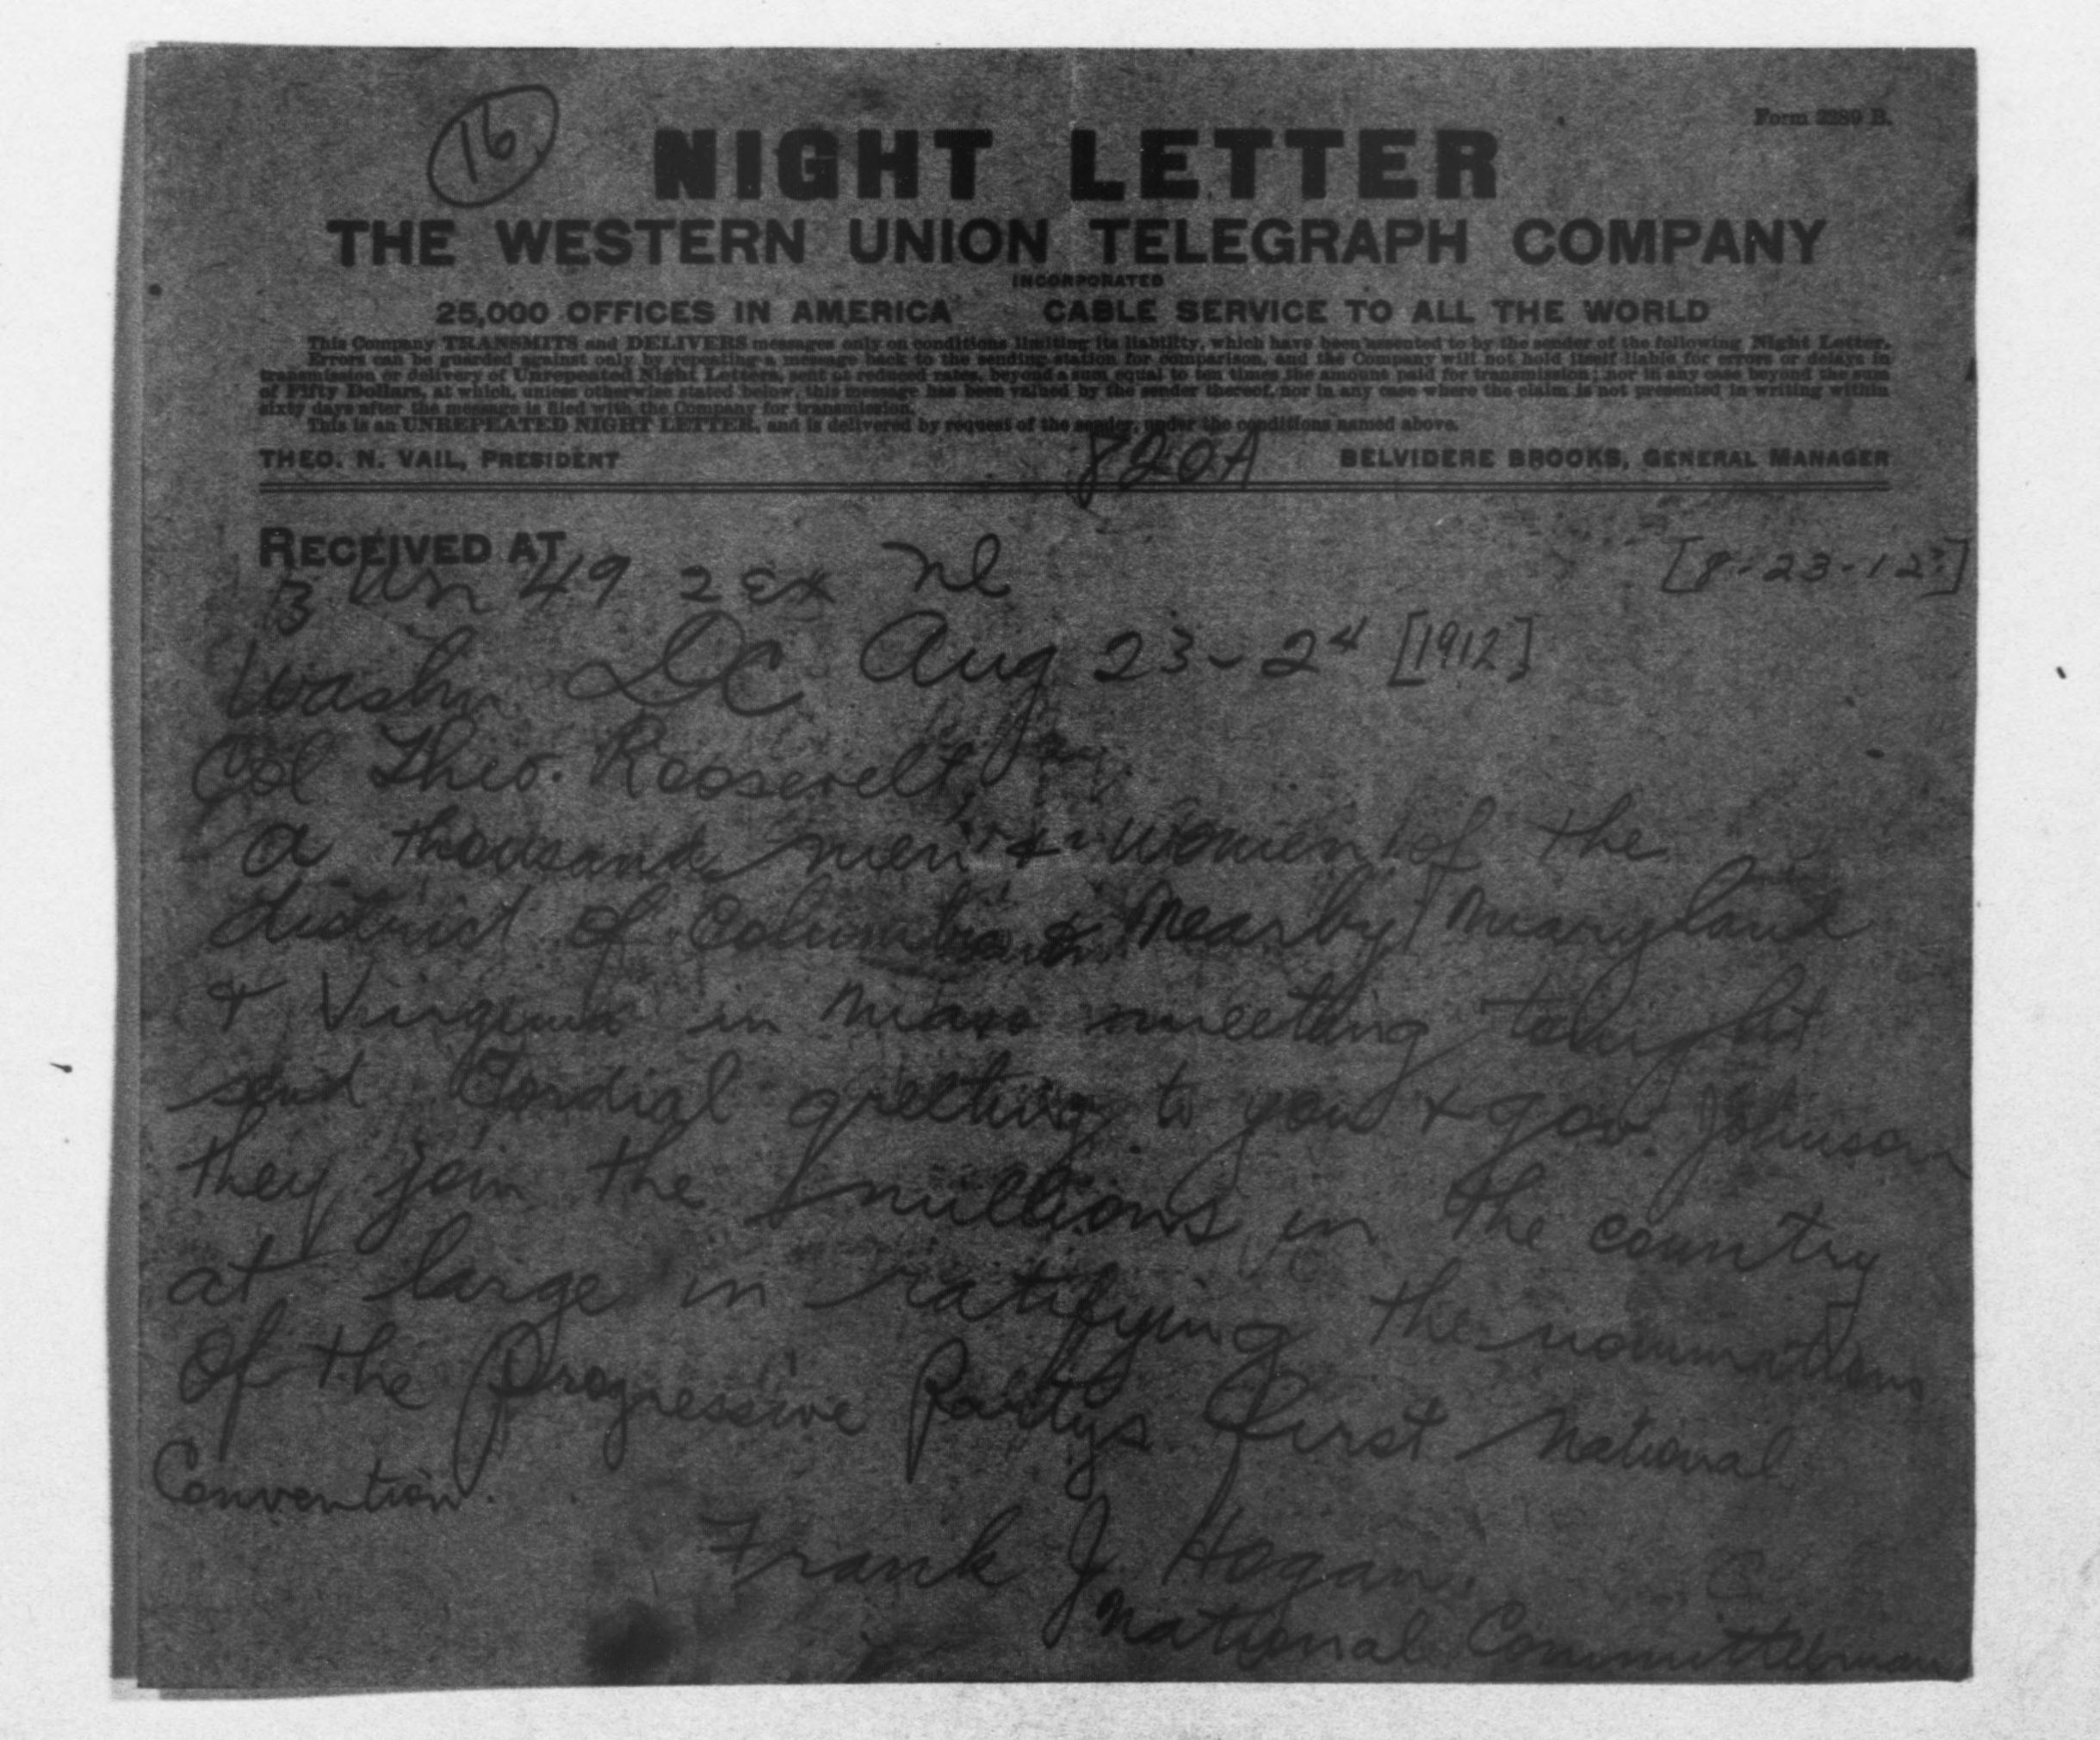 16.
Form 2289 B.
NIGHT LETTER
THE WESTERN UNION TELEGRAPH COMPANY
INCORPORATED
25,000 OFFICES IN AMERICA CABLE SERVICE TO ALL THE WORLD
This Company TRANSMITS and DELIVERS messages only on conditions limiting its liability, which have been assented to by the sender of the following Night Letter.
Errors can be guarded against only by repeating a message back to the sending station for comparison, and the Company will not hold itself liable for errors or delays in
transmission or delivery of Unrepeated Night Letters, sent at reduced rates, beyond a sum equal to ten times the amount paid for transmission; nor in any case beyond the sum
of Fifty Dollars, at which, unless otherwise stated below, this message has been valued by the sender thereof, nor in any case where the claim is not presented in writing within
sixty days after the message is filed with the Company for transmission.
This is an UNREPEATED NIGHT LETTER, and is delivered by request of the sender, under the conditions named above.
THEO. N. VAIL, PRESIDENT 820A BELVIDERE BROOKS, GENERAL MANAGER
RECEIVED AT
[8-23-12]
B 49 2 Ex Nl
Washn DC Aug 23-24 [1912]
Col Theo. Roosevelt
a thousand men & women of the
district of Columbia & nearby Maryland
& Virginia in mass meeting tonight
send Cordial greeting to you & gov Johnson
they join the millions in the country
at large in ratifying the nominations
of the Progressive Partys first National
Convention.
Frank J. Hogan.
National Committeeman